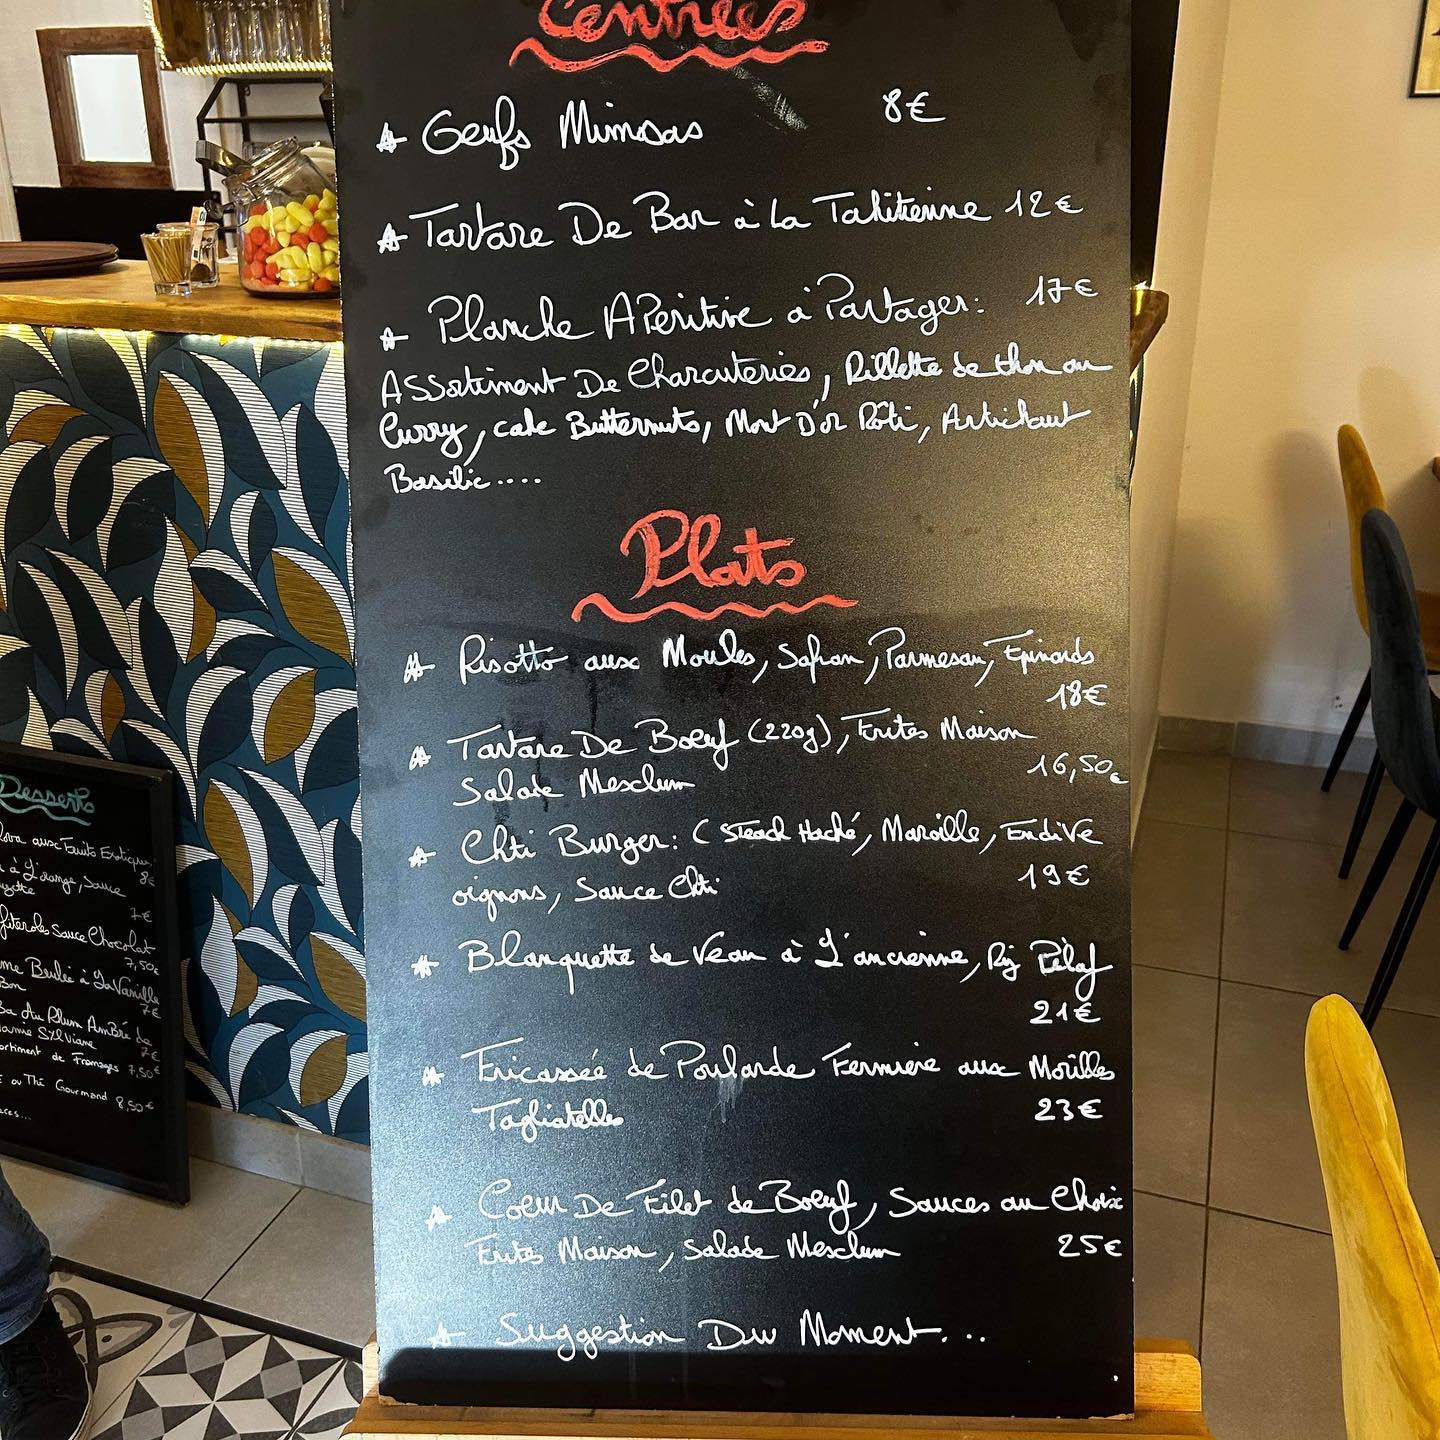 Entrées
Oeufs Mimosas 8€
Tartare De Bar à La Tahitienne 12€
Planche APéritive à Partager: 17€
ASSortiment De Charcuteries, Rillette de thon au
Curry, cake Butternuts, Mont D'or Rôti, Artichaut
Basilic....
Plats
Risotto aux Moules, Safran, Parmesan, Epinards
18€
Tartare De Boeuf (220g), Frites Maison
16,50€
Salade Mesclum
Chti Burger: (Steack Haché, Maroille, EndiVe
oignons, Sauce Chti 19€
Blanquette de Veau à L'ancienne, Riz Pilaf
21€
Fricassée de Poularde Fermière aux Morilles
Tagliatelles 23€
Coeur De Filet de Boeuf, Sauces au Choix
Frites Maison, Salade Mesclum 25€
Suggestion Du Moment...
Desserts
aux Fruits Exotiques
8€
à L'orange, Sauce
7€
Sauce Chocolat
7,50€
Brulée à La Vanille
7€
Au Rhum AmBré de
Sylviane 7€
de Fromages 7,50€
ou Thé Gourmand 8,50€